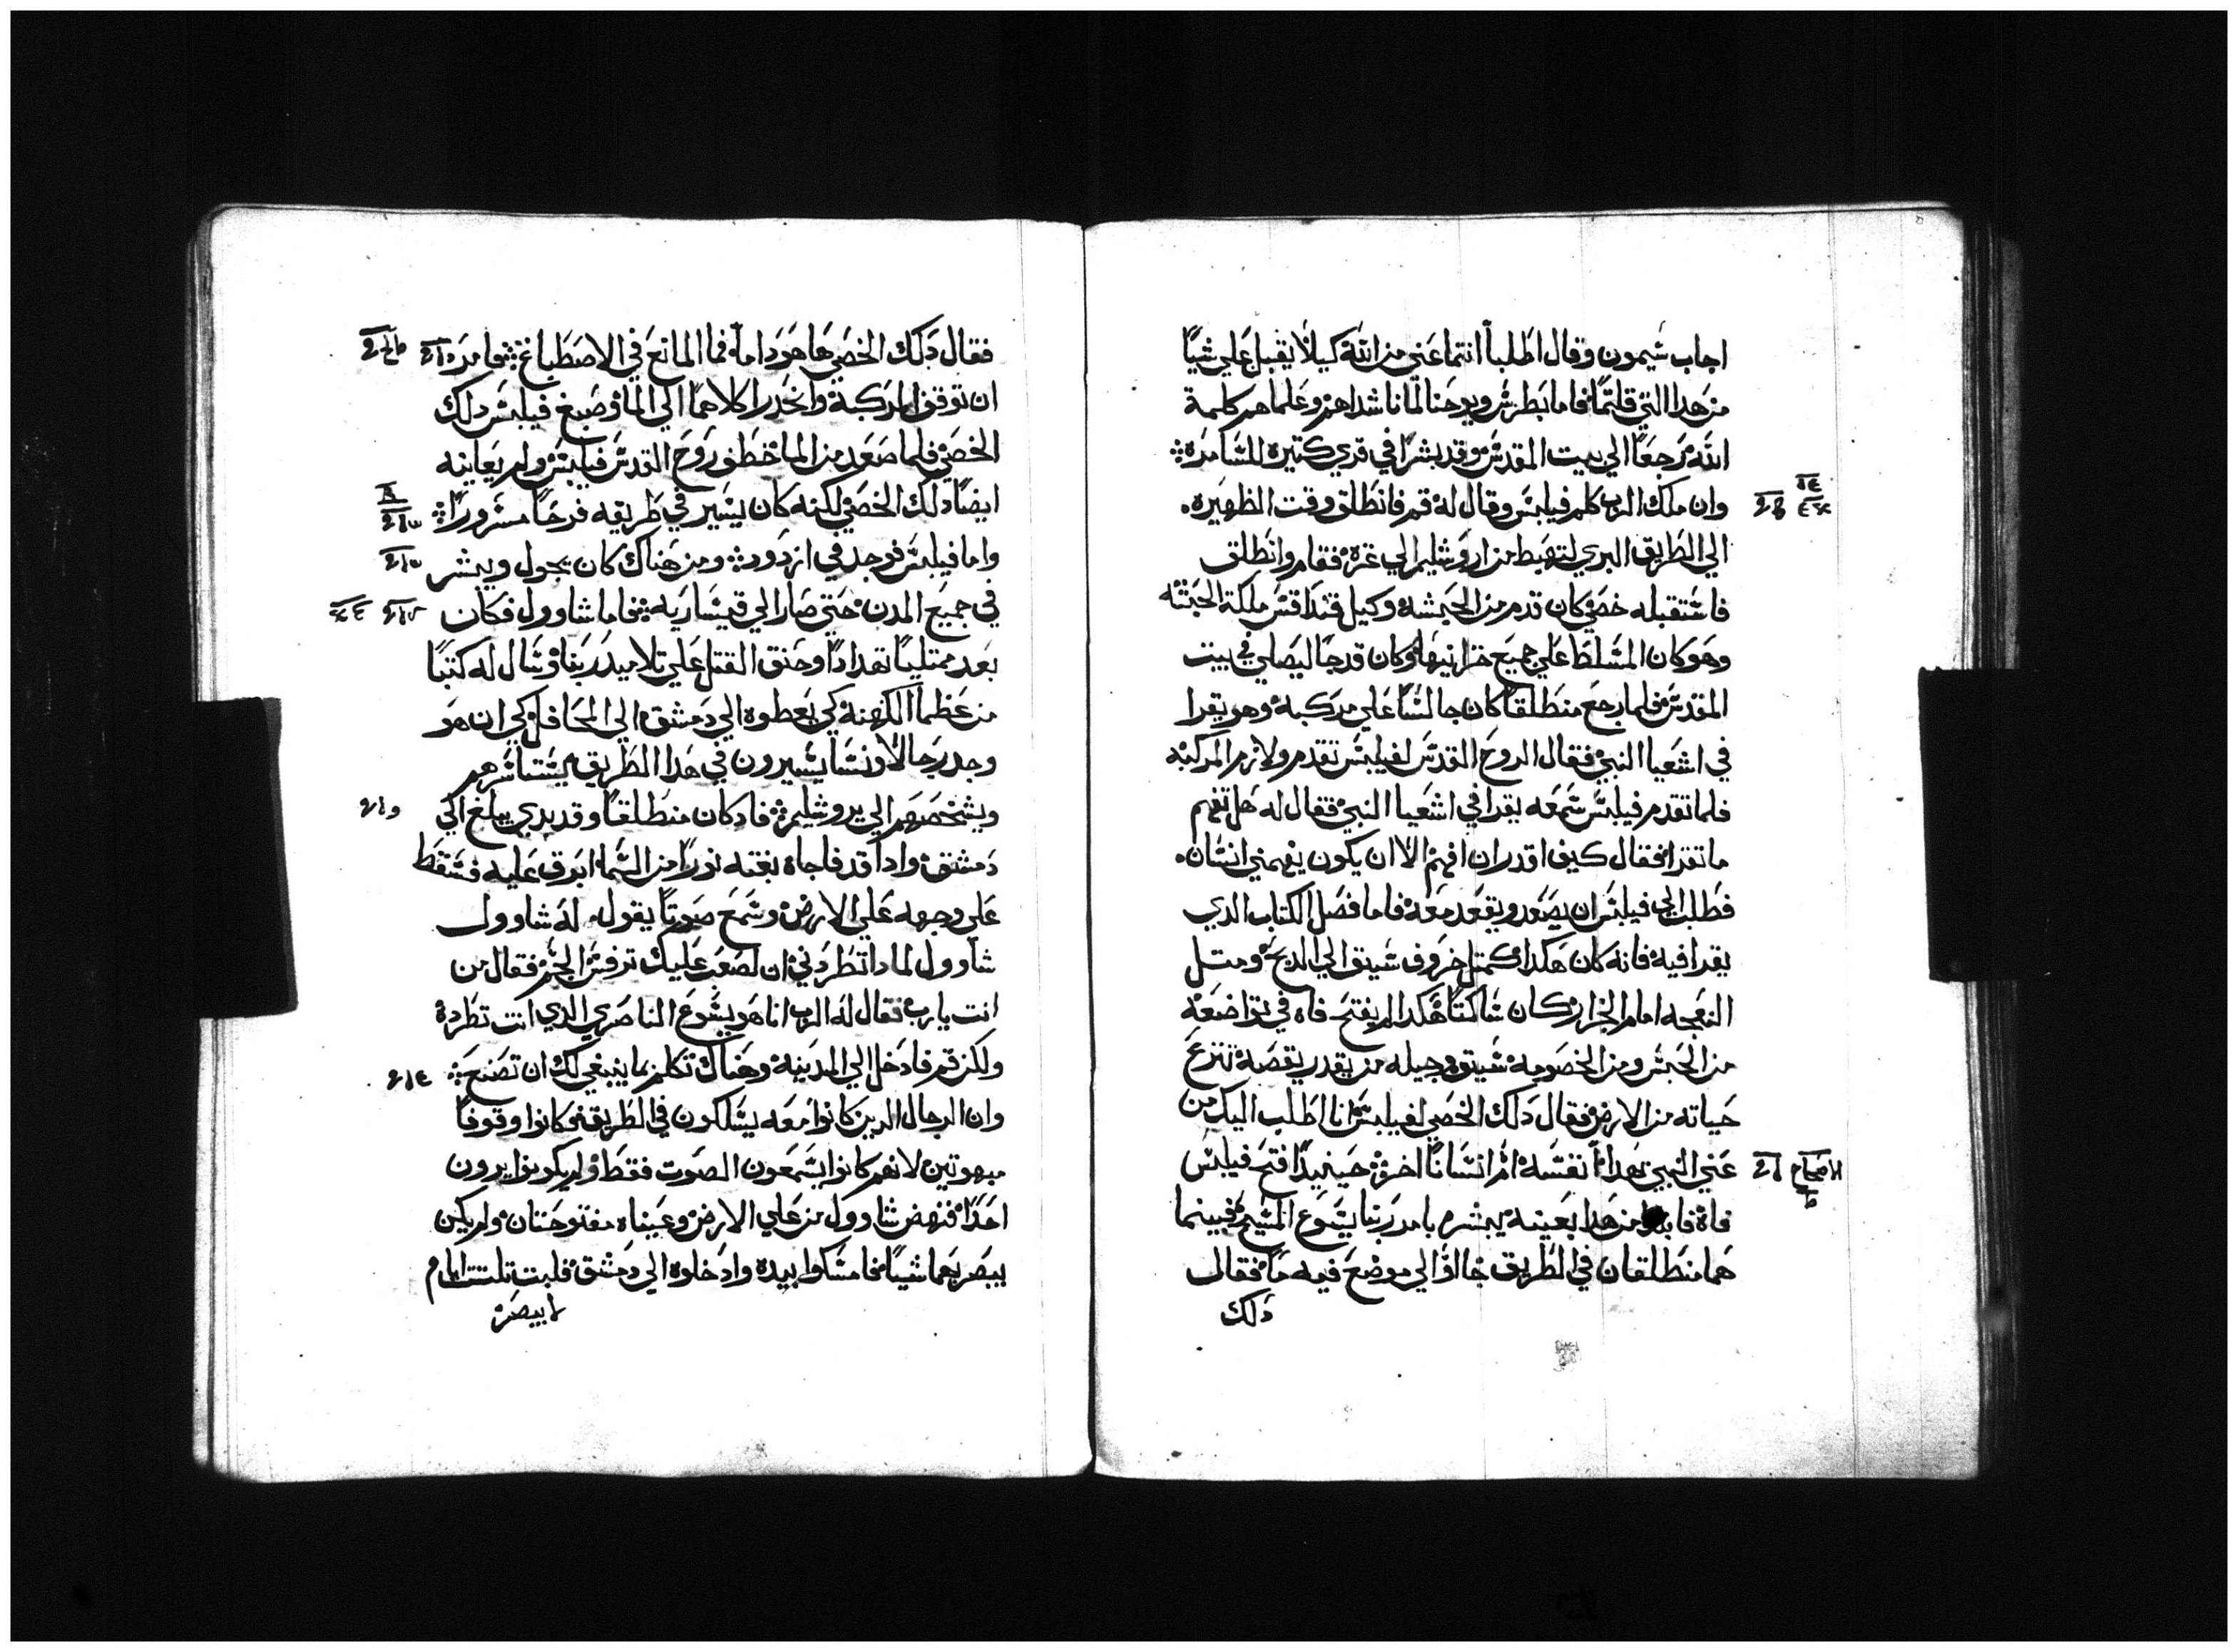 اجاب شيمون وقال اطلبا انتما عني من الله كيلا يقبل علي شيا
من هدا التي قلتما فاما بطرس ويوحنا لما ناشداهم وعلماهم كلمة
الله رجعا الي بيت المقدس وقد بشرا في قري كتيره للسامرة
وان ملك الرب كلم فيلبس وقال له قم فانطلق وقت الظهيره
الي الطريق البري لتهبط من اروشليم الي غزة فقام وانطلق
فاستقبله خصي كان قدم من الحبشة وكيل قنداقس ملكة الحبشة
وهو كان المسلط علي جميع خزاينها وكان قد جا ليصلي في بيت
المقدس فلما رجع منطلقا كان جالسا علي مركبة وهو يقرا
في اشعيا النبي فقال الروح القدس لفيلبس تقدم ولازم المركبة
فلما تقدم فيلبس سمعه يقرا في اشعيا النبي فقال له هل تفهم
ما تقرا فقال كيف اقدر ان افهم الا ان يكون يفهمني انسان
فطلب الي فيلبس ان يصعد ويقعد معه فاما فصل الكتاب الدي
يقرا فيه فانه كان هكدا كمتل خروف سيق الي الدبح ومتل
النعجه امام الجزار كان ساكتا هكدا لم يفتح فاه في تواضعه
من الحبس ومن الخصومه سيق وجيله من يقدر يقصه تنزع
حياته من الارض فقال دلك الخصي لفيلبس انا اطلب اليك من
عني النبي بهدا نفسه ام انسانا اخر حينيدا فتح فيلبس
الاصحاح
فاه من هدا بعينه يبشره بامر ربنا يسوع المسيح فبينما
هما منطلقان في الطريق جااا الي موضع فيه ما فقال
دلك
فقال دلك الخصي ها هودا ما فما المانع في الاصطباغ فامر
ان توقف المركبة وانحدرا كلاهما الي الما وصبغ فيلبس دلك
الخصي فلما صعد من الما خطف روح القدس فيلبس ولم يعاينه
ايضا دلك الخصي لكنه كان يسير في طريقه فرحا مسرورا
واما فيلبس فوجد في ازدود ومن هناك كان يجول ويبشر
في جميع المدن حتي صار الي قيساريه فاما شاوول فكان
بعد ممتليا تهدادا وحنق القتل علي تلاميد ربنا وسال له كتبا
من عظما الكهنة كي يعطوه الي دمشق الي المحافل كي ان هو
وجد رجالا ونسا يسيرون في هدا الطريق يستاسرهم
ويشخصهم الي يروشليم فاد كان منطلقا وقد بدي يبلغ الي
دمشق وادا قد فاجاه بغته نورا من السما ابرق عليه فسقط
علي وجهه علي الارض وسمع صوتا يقول له شاوول
شاوول لمادا تطردني ان لصعب عليك ترفس الجمر فقال من
انت يارب فقال له الرب انا هو يسوع الناصري الدي انت تطردة
ولكن قم فادخل الي المدينة وهناك تكلم بما ينبغي لك ان تصنع
وان الرجال الدين كانوا معه يسلكون في الطريق كانوا وقوفا
مبهوتين لانهم كانوا يسمعون الصوت فقط ولم يكونوا يرون
احدا فنهض شاوول من علي الارض وعيناه مفتوحتان ولم يكن
يبصر بهما شيا فامسكوا بيده وادخلوه الي دمشق فلبت تلتت ايام
لا يبصر